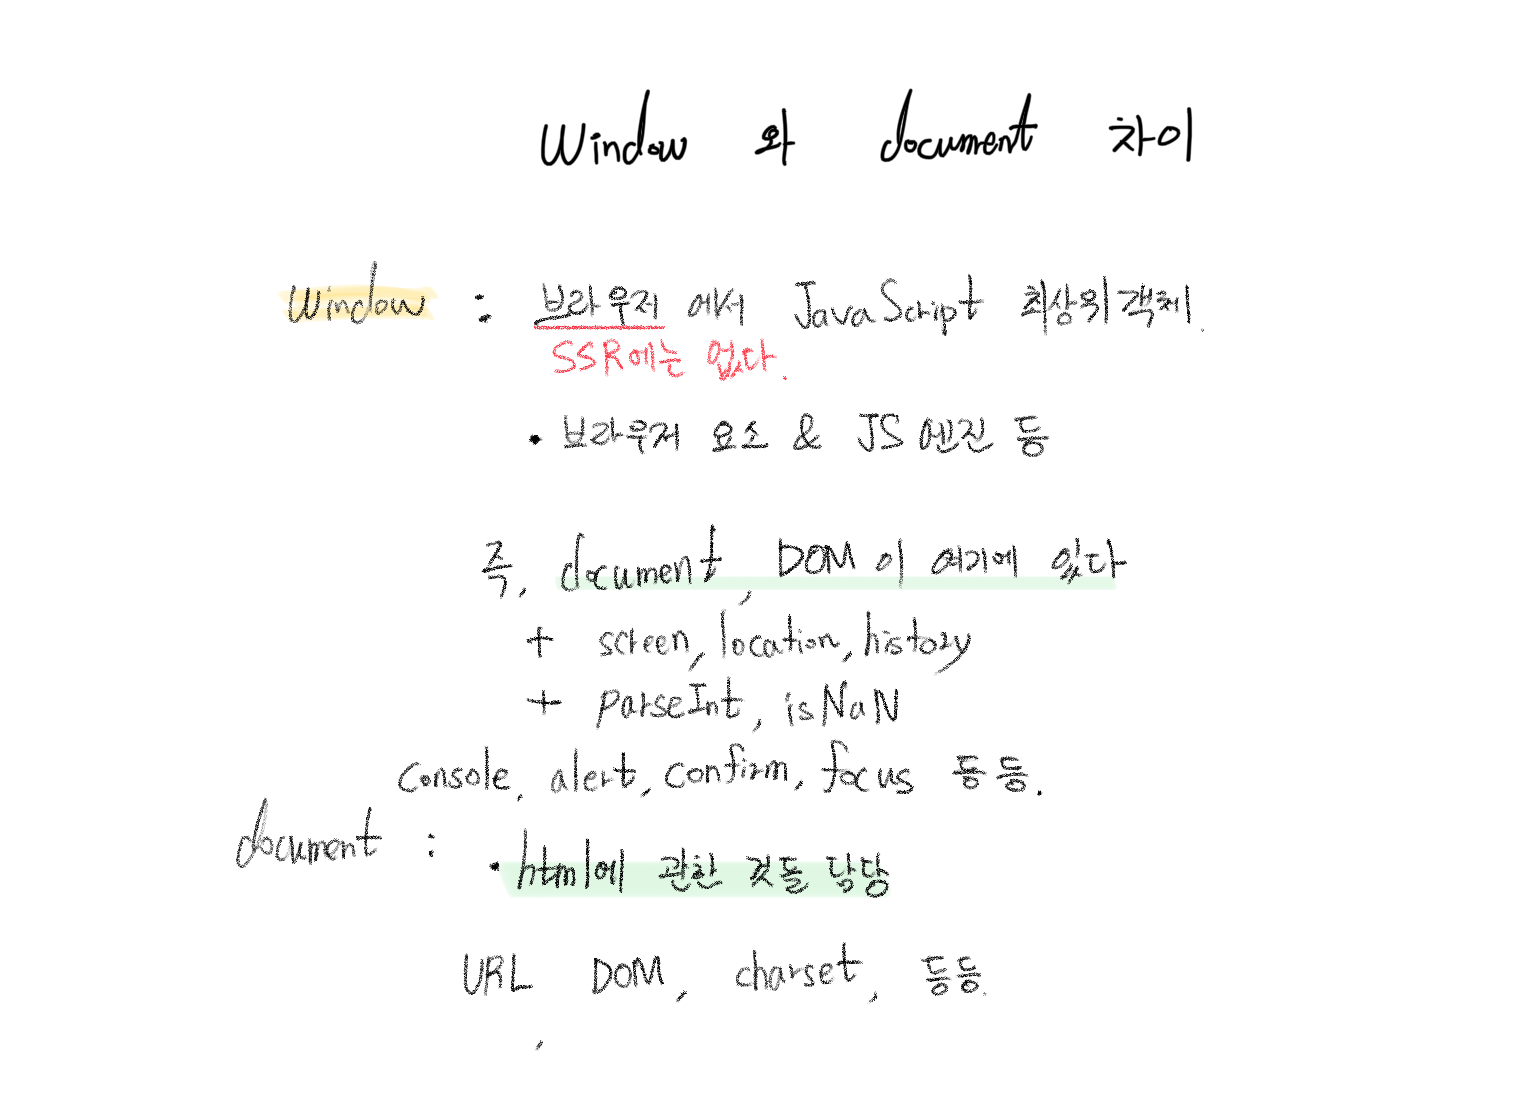 window 와 document 차이
window : 브라우저 에서 JavaScript 최상위객체.
SSR에는 없다.
• 브라우저 요소 & JS엔진 등
즉, document, DOM이 여기에 있다
+ screen, location, history
+ parseInt, isNaN
console, alert, confirm, focus 등등.
document : • html에 관한 것들 담당
URL, DOM, charset, 등등.